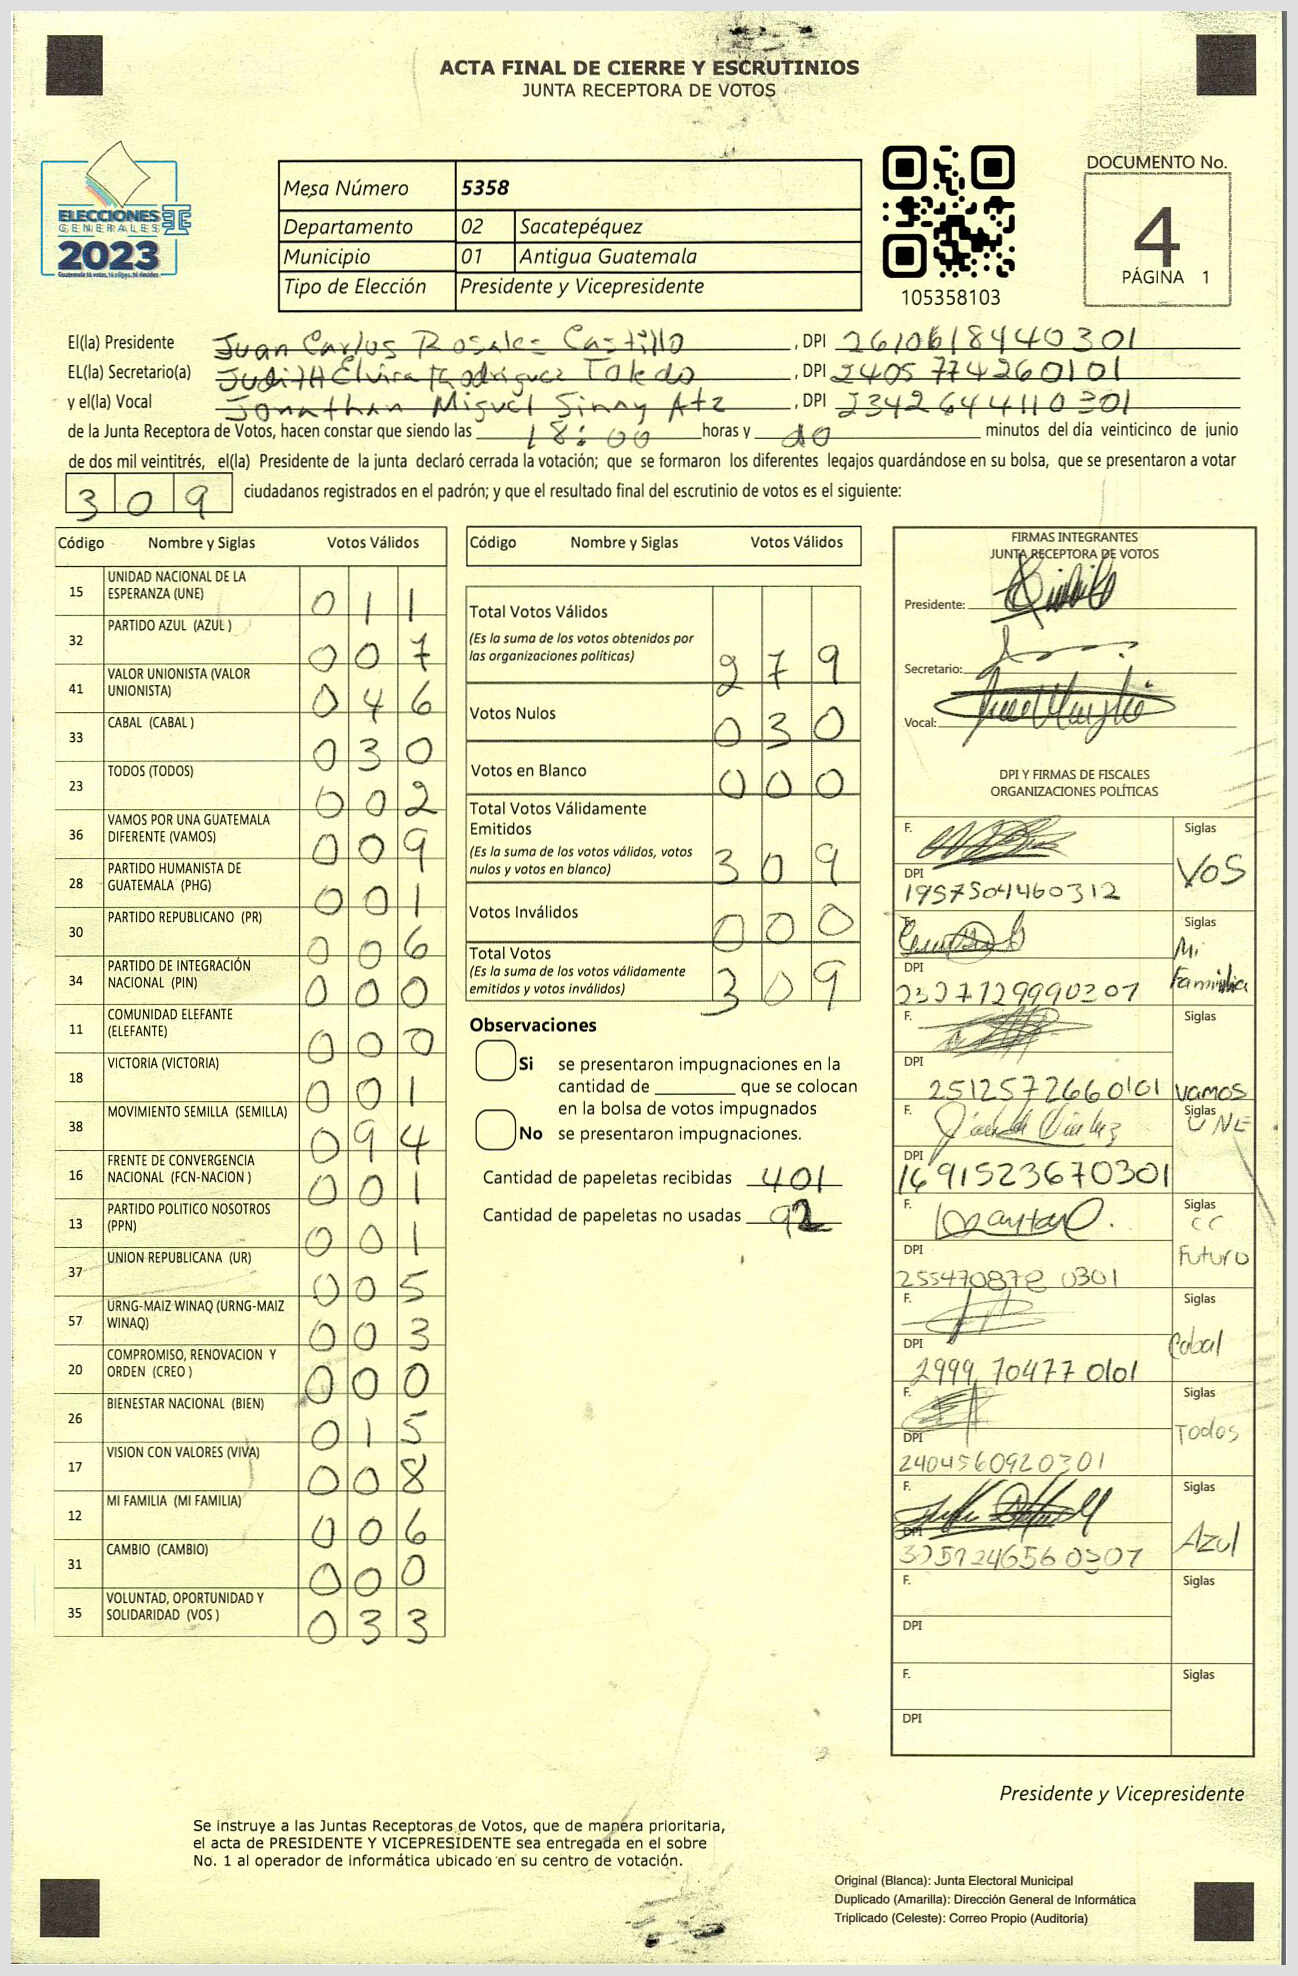 ACTA FINAL DE CIERRE Y ESCRUTINIOS
JUNTA RECEPTORA DE VOTOS
ELECCIONES
GENERALES
2023
Mesa Número 5358
Departamento 02 Sacatepéquez
Municipio 01 Antigua Guatemala
Tipo de Elección Presidente y Vicepresidente
105358103
DOCUMENTO No.
4
PÁGINA 1
El(la) Presidente Juan Carlos Rosales Castillo, DPI 2610618440301
EL(la) Secretario(a) Judith Elvira Rodriguez Toledo, DPI 2405774260101
y el(la) Vocal Jonathan Miguel Sinay Atz, DPI 2342644110301
de la Junta Receptora de Votos, hacen constar que siendo las 18:00 horas y 00 minutos del día veinticinco de junio
de dos mil veintitrés, el(la) Presidente de la junta declaró cerrada la votación; que se formaron los diferentes legajos guardándose en su bolsa, que se presentaron a votar
309 ciudadanos registrados en el padrón; y que el resultado final del escrutinio de votos es el siguiente:
Código Nombre y Siglas Votos Válidos
15 UNIDAD NACIONAL DE LA ESPERANZA (UNE) 011
32 PARTIDO AZUL (AZUL ) 007
41 VALOR UNIONISTA (VALOR UNIONISTA) 046
33 CABAL (CABAL ) 030
23 TODOS (TODOS) 002
36 VAMOS POR UNA GUATEMALA DIFERENTE (VAMOS) 009
28 PARTIDO HUMANISTA DE GUATEMALA (PHG) 001
30 PARTIDO REPUBLICANO (PR) 006
34 PARTIDO DE INTEGRACIÓN NACIONAL (PIN) 000
11 COMUNIDAD ELEFANTE (ELEFANTE) 000
18 VICTORIA (VICTORIA) 001
38 MOVIMIENTO SEMILLA (SEMILLA) 094
16 FRENTE DE CONVERGENCIA NACIONAL (FCN-NACION ) 001
13 PARTIDO POLITICO NOSOTROS (PPN) 001
37 UNION REPUBLICANA (UR) 005
57 URNG-MAIZ WINAQ (URNG-MAIZ WINAQ) 003
20 COMPROMISO, RENOVACION Y ORDEN (CREO ) 000
26 BIENESTAR NACIONAL (BIEN) 015
17 VISION CON VALORES (VIVA) 008
12 MI FAMILIA (MI FAMILIA) 006
31 CAMBIO (CAMBIO) 000
35 VOLUNTAD, OPORTUNIDAD Y SOLIDARIDAD (VOS ) 033
Código Nombre y Siglas Votos Válidos
Total Votos Válidos 279
(Es la suma de los votos obtenidos por
las organizaciones políticas)
Votos Nulos 030
Votos en Blanco 000
Total Votos Válidamente
Emitidos
(Es la suma de los votos válidos, votos
nulos y votos en blanco) 309
Votos Inválidos 000
Total Votos
(Es la suma de los votos válidamente
emitidos y votos inválidos) 309
Observaciones
Si se presentaron impugnaciones en la
cantidad de ________ que se colocan
en la bolsa de votos impugnados
No se presentaron impugnaciones.
Cantidad de papeletas recibidas 401
Cantidad de papeletas no usadas 92
FIRMAS INTEGRANTES
JUNTA RECEPTORA DE VOTOS
Presidente:
Secretario:
Vocal:
DPI Y FIRMAS DE FISCALES
ORGANIZACIONES POLÍTICAS
F. Siglas
VOS
DPI
1957504460312
Siglas
Mi
Familia
DPI
2327729990301
F. Siglas
DPI
2512572660101 vamos
F. Siglas
UNE
DPI
1691523670301
F. Siglas
CC
Futuro
DPI
2554708780301
F. Siglas
Cabal
DPI
2999704770101
F. Siglas
Todos
DPI
2404560920301
F. Siglas
Azul
DPI
F. Siglas
DPI
F. Siglas
DPI
Presidente y Vicepresidente
Se instruye a las Juntas Receptoras de Votos, que de manera prioritaria,
el acta de PRESIDENTE Y VICEPRESIDENTE sea entregada en el sobre
No. 1 al operador de informática ubicado en su centro de votación.
Original (Blanca): Junta Electoral Municipal
Duplicado (Amarilla): Dirección General de Informática
Triplicado (Celeste): Correo Propio (Auditoría)